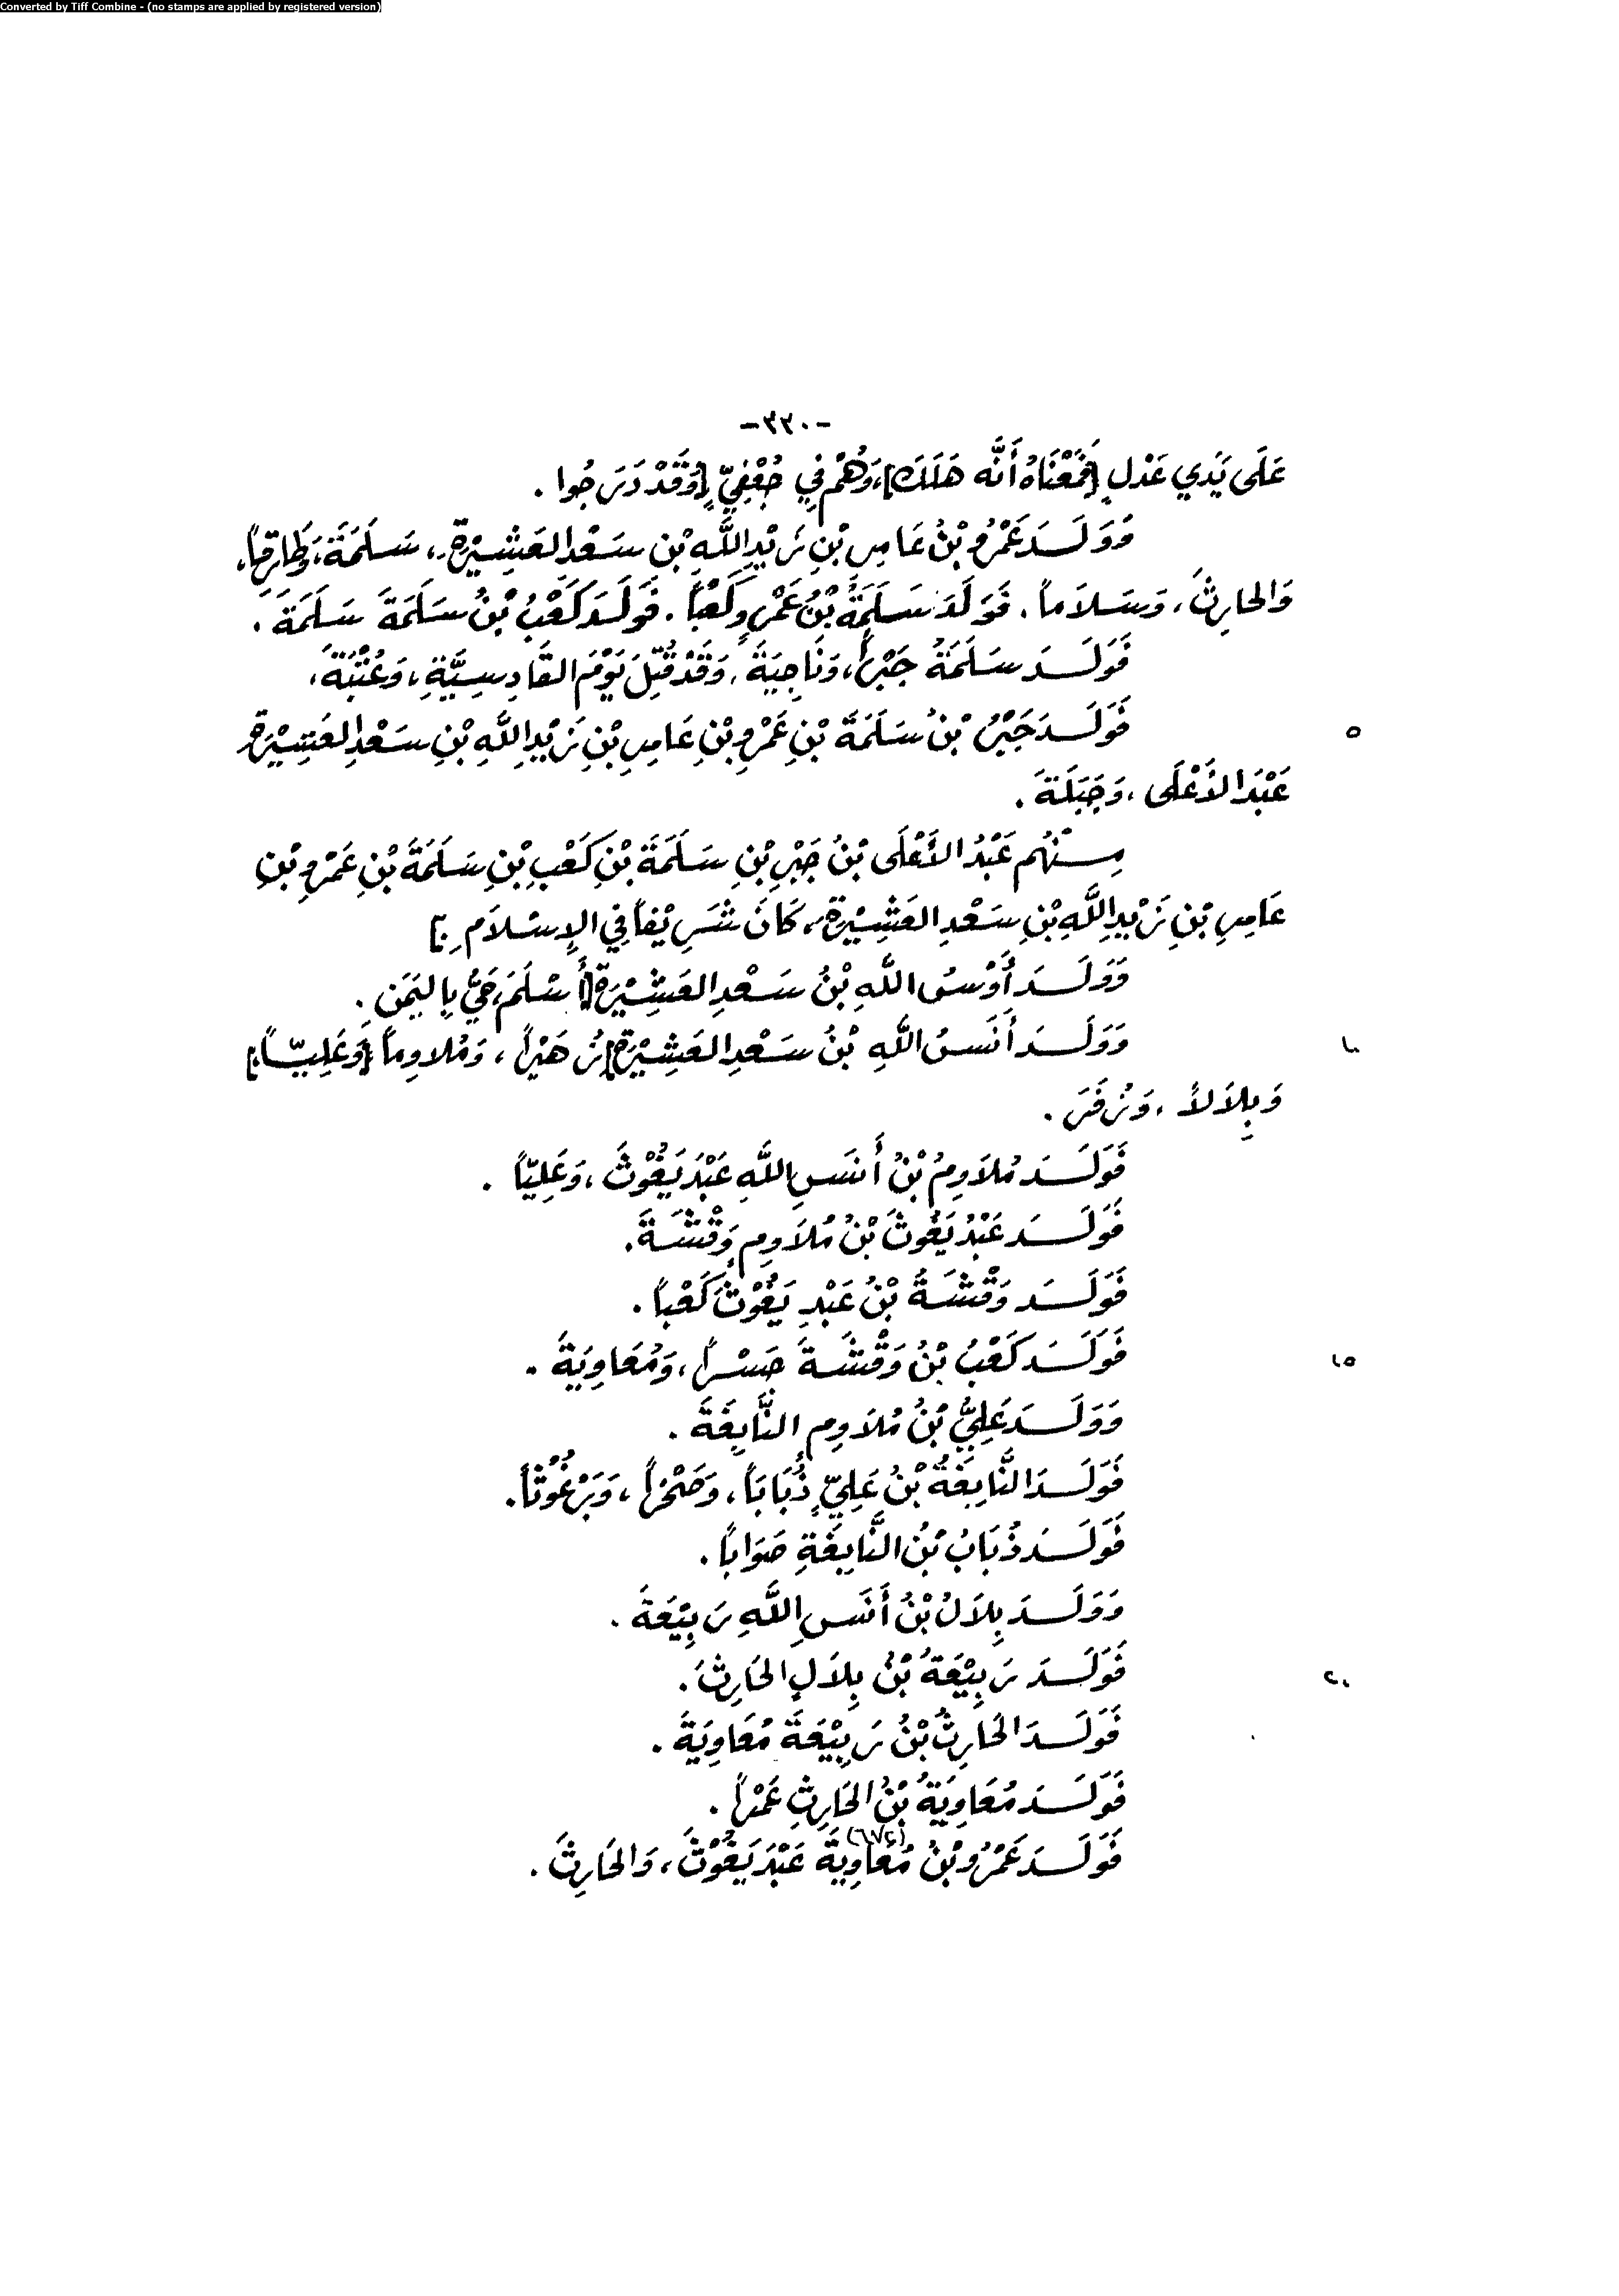 Converted by Tiff Combine - (no stamps are applied by registered version)
-٣٢٠-
عَلَى يَدَي عَدْلٍ [فَمَعْنَاهُ أَنَّه هَلَكَ]، وَهُمْ فِي جُعْفِيّ [وَقَدْ دَرَجُوا .
وَوَلَدَ عَمْرُو بْنُ عَامِرِ بْنِ زَيْدِ اللَّهِ بْنِ سَعْدِ العَشِيْرَةِ، سَلَمَةَ، وَطَارِقاً،
وَالحَارِثَ، وَسَلاَماً. فَوَلَدَ سَلَمَةُ بْنُ عَمْرٍو كَعْباً. فَوَلَدَ كَعْبُ بْنُ سَلَمَةَ سَلَمَةَ .
فَوَلَدَ سَلَمَةُ جَبْراً، وَنَاجِيَةَ، وَقَدْ قُتِلَ يَوْمَ القَادِسِيَّةِ، وَعُتْبَةَ،
٥ فَوَلَدَ جَبْرُ بْنُ سَلَمَةَ بْنِ عَمْرِو بْنِ عَامِرِ بْنِ زَيْدِ اللَّهِ بْنِ سَعْدِ العَشِيْرَةِ
عَبْدَ الأَعْلَى، وَجَبَلَةَ .
مِنْهُم عَبْدُ الأَعْلَى بْنُ جَبْرِ بْنِ سَلَمَةَ بْنِ كَعْبِ بْنِ سَلَمَةَ بْنِ عَمْرِو بْنِ
عَامِرِ بْنِ زَيْدِ اللَّهِ بْنِ سَعْدِ العَشِيْرَةِ، كَانَ شَرِيْفاً فِي الإِسْلاَمِ .]
وَوَلَدَ أَوْسُ اللَّهِ بْنُ سَعْدِ العَشِيْرَةِ [أَسْلَمَ، حَيٌّ بِاليَمَنِ .
١٠ وَوَلَدَ أَنَسُ اللَّهِ بْنُ سَعْدِ العَشِيْرَةِ] زُهَيْراً، وَمُلاوِماً [وَعَلِيّاً]
وَبِلاَلاً، وَزُفَرَ .
فَوَلَدَ مُلاَوِمُ بْنُ أَنَسِ اللَّهِ عَبْدَ يَغُوْثَ، وَعَلِيّاً .
فَوَلَدَ عَبْدُ يَغُوثَ بْنُ مُلاَوِمٍ وَقْشَةَ.
فَوَلَدَ وَقْشَةُ بْنُ عَبْدِ يَغُوْثَ كَعْباً .
١٥ فَوَلَدَ كَعْبُ بْنُ وَقْشَةَ حَسْراً، وَمُعَاوِيَةَ .
وَوَلَدَ عَلِيُّ بْنُ مُلاَوِمٍ النَّابِغَةَ .
فَوَلَدَ النَّابِغَةُ بْنُ عَلِيٍّ ذُبَابَاً، وَصَخْراً، وَبَرْغُوْثاً.
فَوَلَدَ ذُبَابُ بْنُ النَّابِغَةِ صَوَاباً .
وَوَلَدَ بِلاَلُ بْنُ أَنَسِ اللَّهِ رَبِيْعَةَ .
٢٠ فَوَلَدَ رَبِيْعَةُ بْنُ بِلاَلٍ الحَارِثَ .
فَوَلَدَ الحَارِثُ بْنُ رَبِيْعَةَ مُعَاوِيَةَ .
فَوَلَدَ مُعَاوِيَةُ بْنُ الحَارِثِ عَمْراً .
فَوَلَدَ عَمْرُو بْنُ مُعَاوِيَةَ (٦٧٤) عَبْدَ يَغُوْثَ، وَالحَارِثَ .